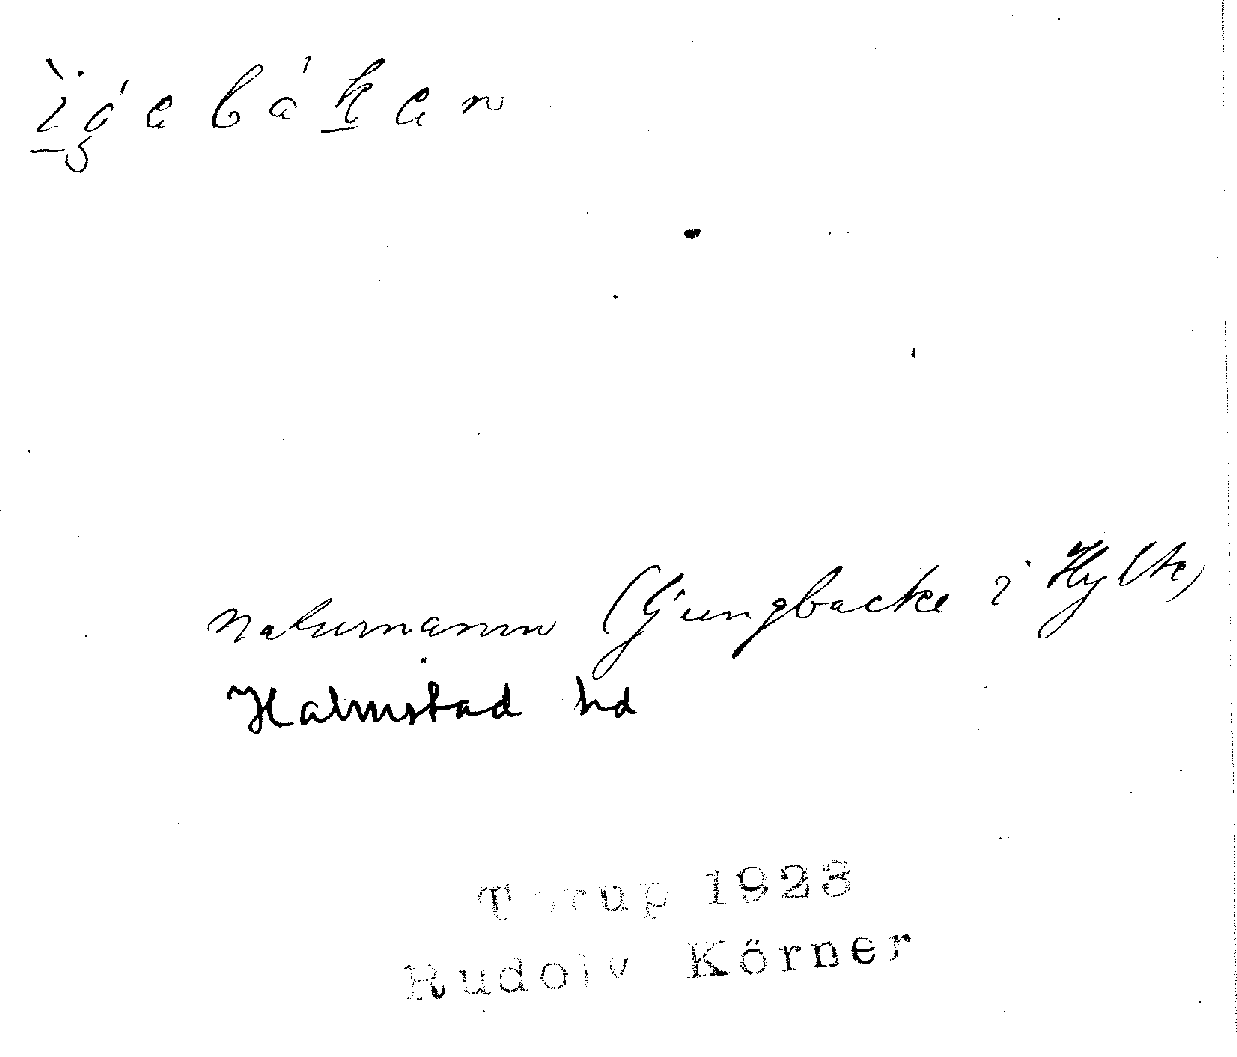 ìgebáken
naturnamn (ljungbacke i Hylte)
Halmstad hd
Torup 1923
Rudolv Körner